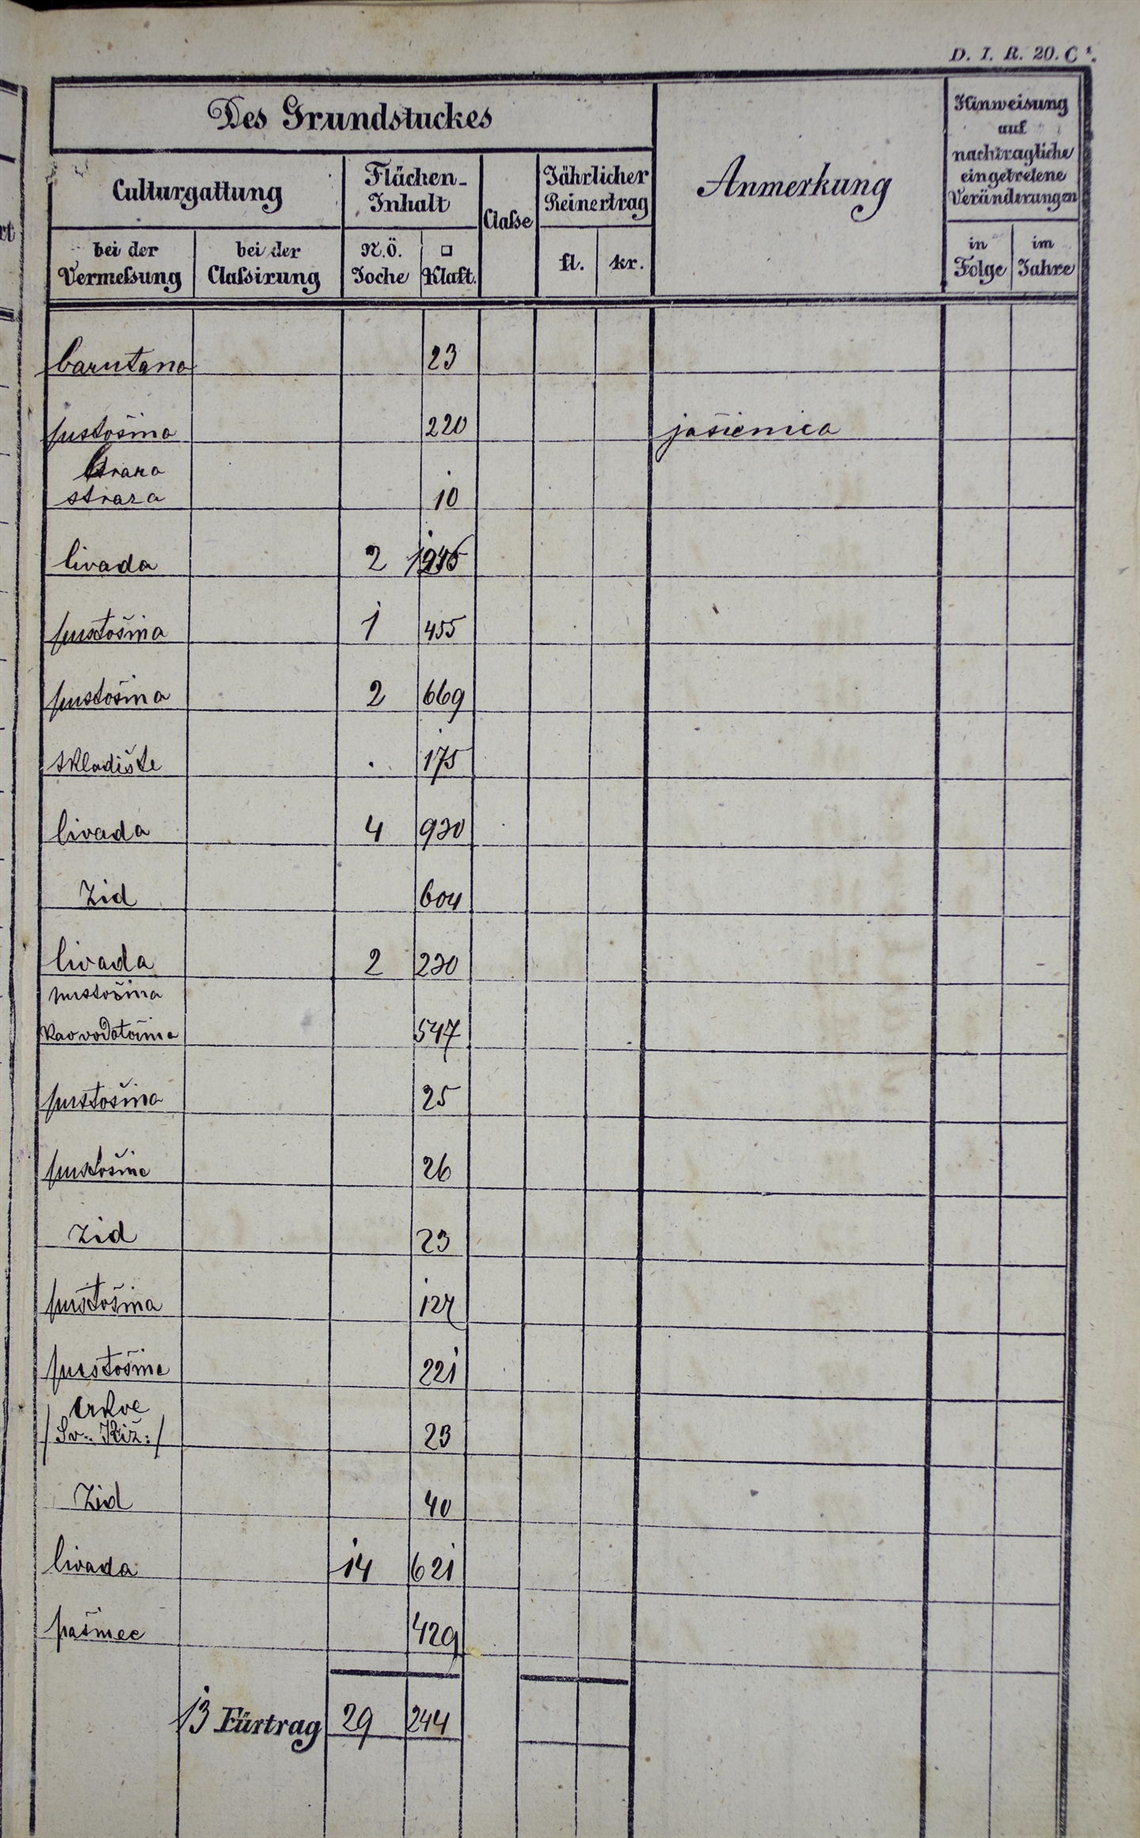 D. I. R. 20. C¹.
Des Grundstuckes
Anmerkung
Hinweisung
auf
nachtragliche
eingetretene
Veränderungen
Culturgattung
Flächen-
Inhalt
Classe
Jährlicher
Reinertrag
bei der
Vermeſsung
bei der
Claſsirung
N.Ö.
Joche
□
Klaft.
fl.
kr.
in
Folge
im
Jahre
barutana 23
pustošina 220 jašienica
straza 10
livada 2
pustošina 1 455
pustošina 2 669
skladište . 175
livada 4 930
Zid 604
livada 2 230
pustošina
kao vododerina 547
pustošina 25
pustošina 26
Zid 23
pustošina 127
pustošina 221
crkve
/Sv. Križ:/ 23
Zid 40
livada 14 621
pašnec 429
13 Fürtrag 29 244